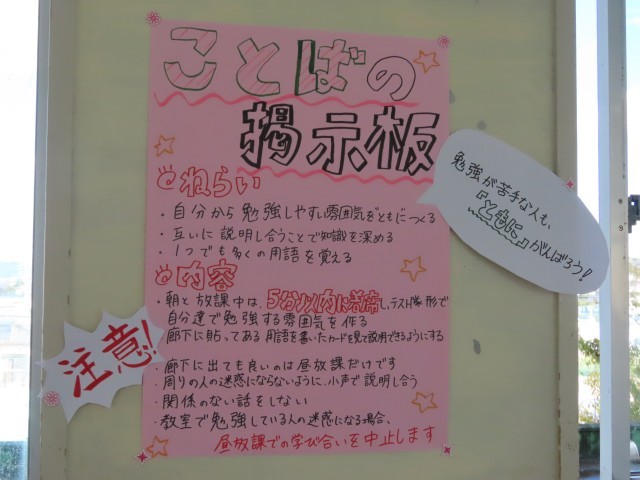 ことばの
掲示板
ねらい
・自分から勉強しやすい雰囲気をともにつくる
・互いに説明し合うことで知識を深める
・1つでも多くの用語を覚える
内容
・朝と放課中は、5分以内に着席し、テスト隊形で
自分達で勉強する雰囲気を作る
廊下に貼ってある用語を書いたカードを見て説明できるようにする
・廊下に出ても良いのは昼放課だけです
・周りの人の迷惑にならないように、小声で説明し合う
・関係のない話をしない
・教室で勉強している人の迷惑になる場合、
昼放課での学び合いを中止します
勉強が苦手な人も、
『ともに』がんばろう!
注意!